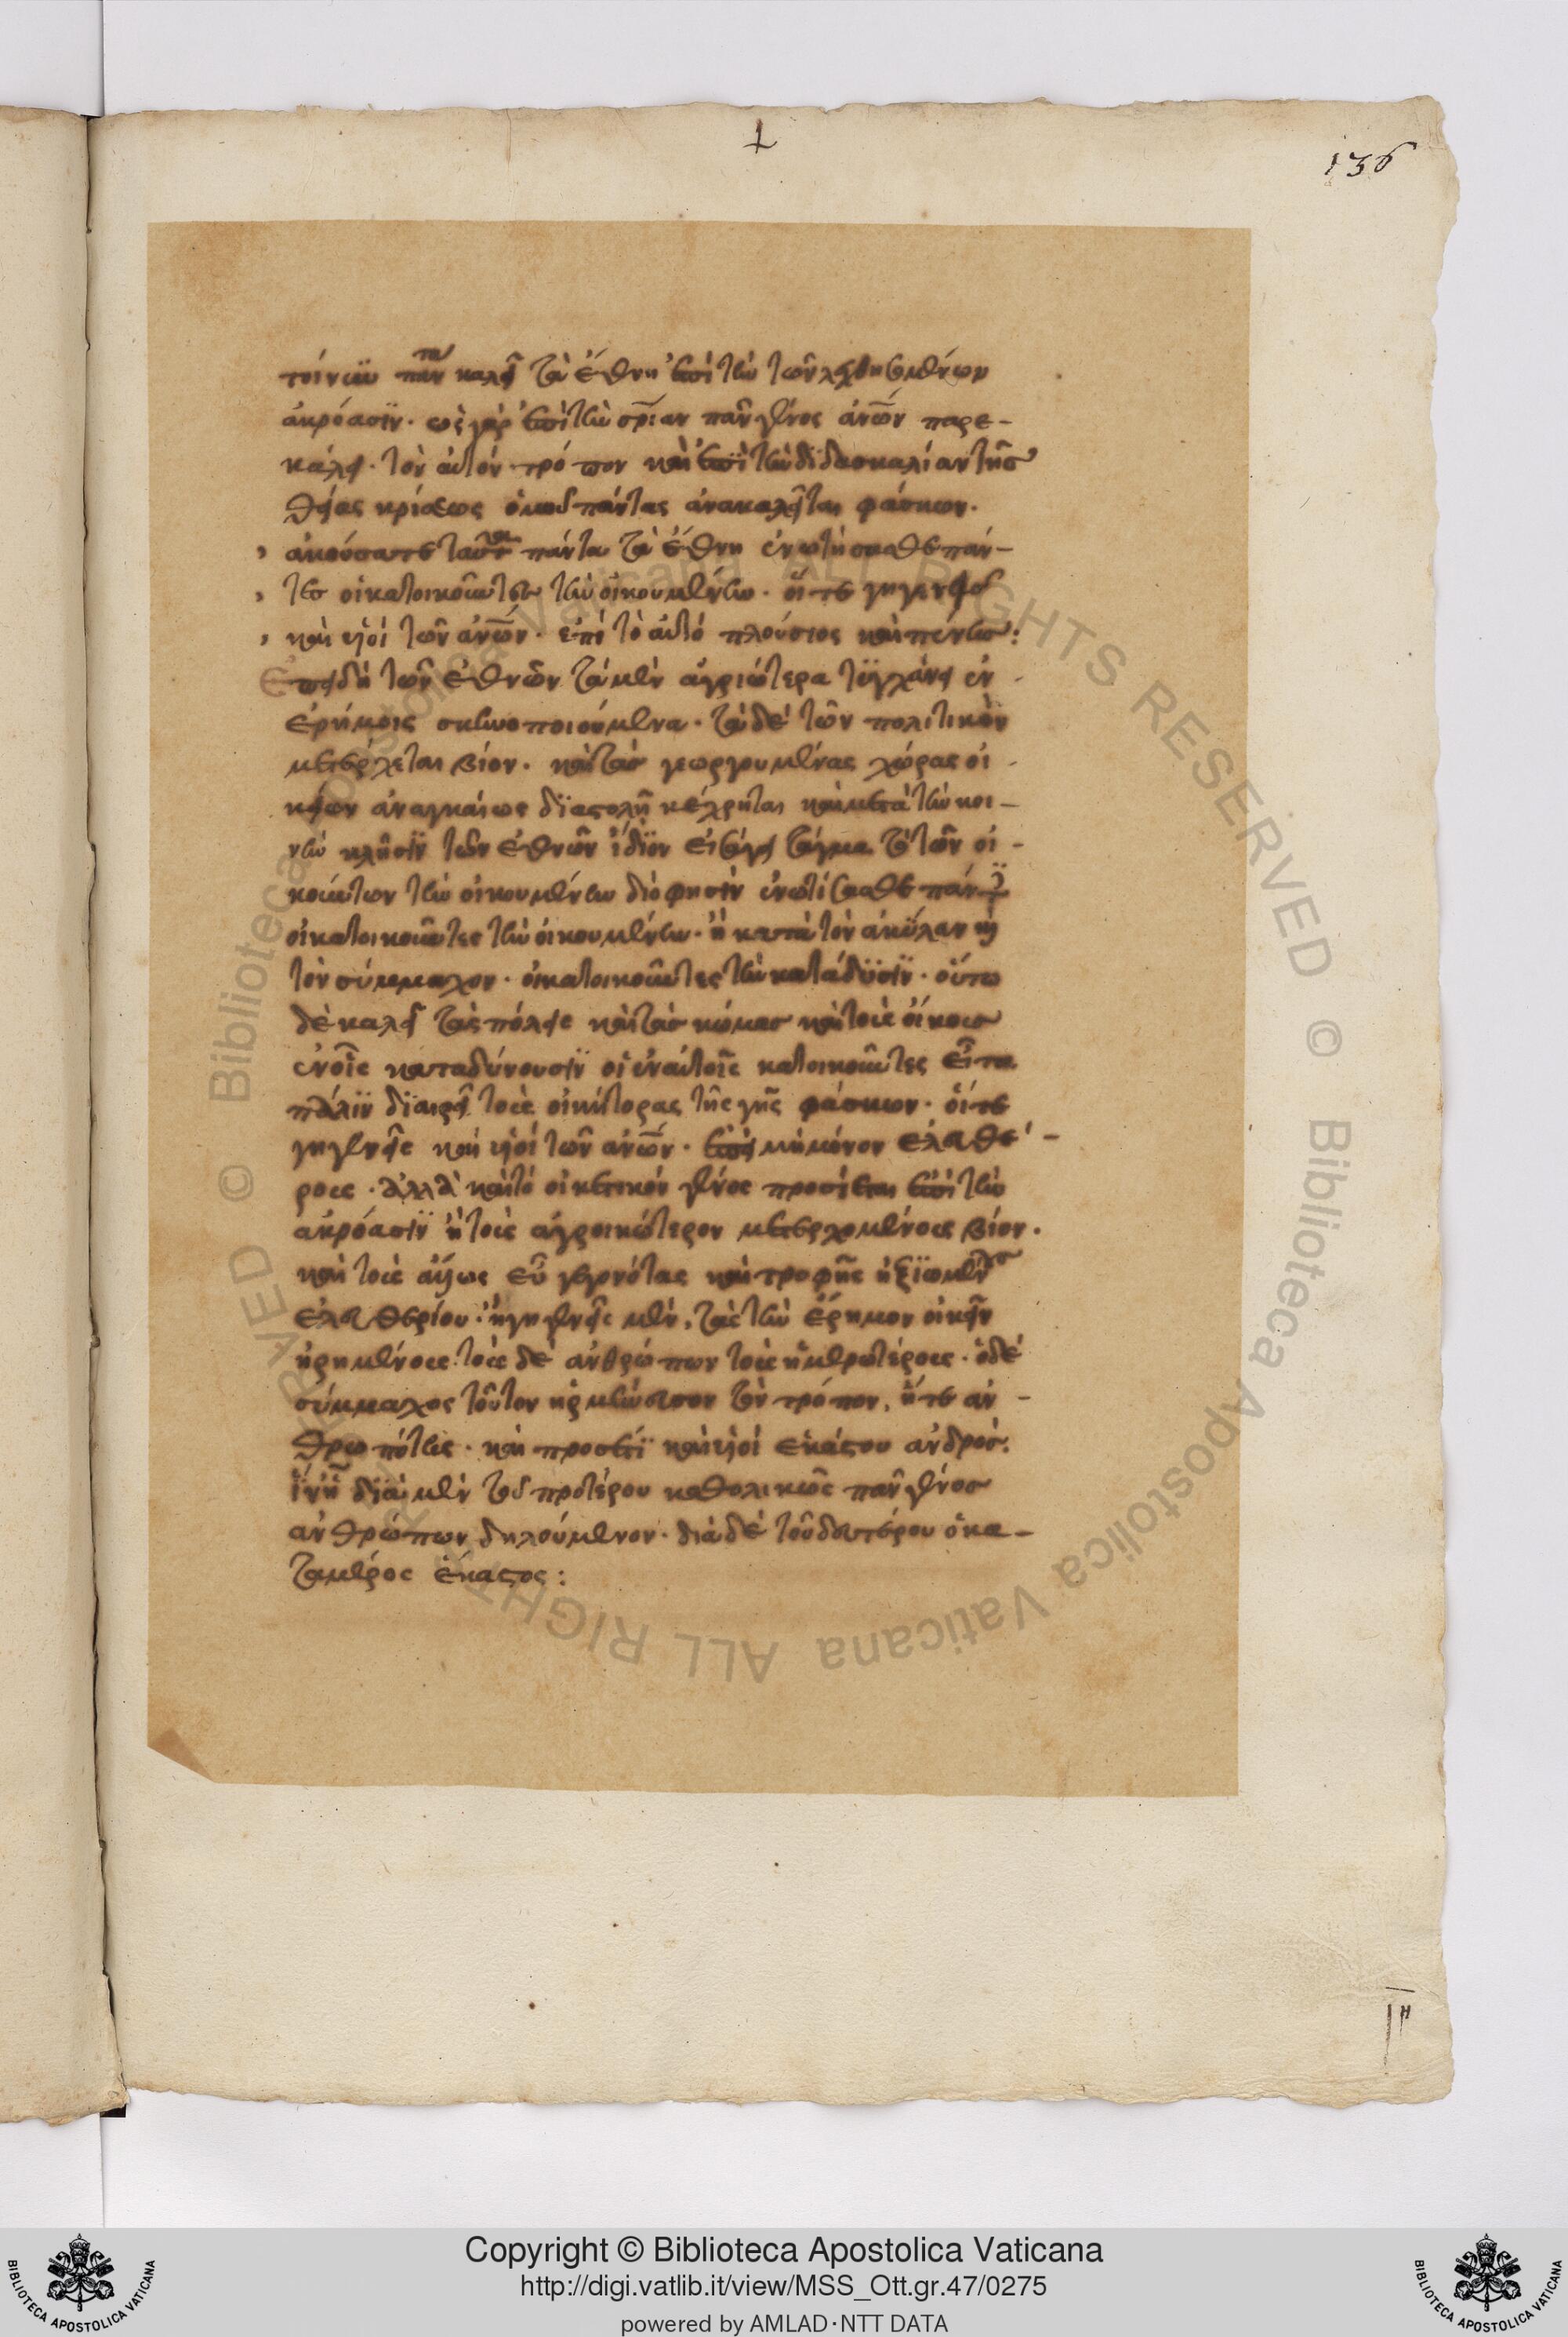 136
τοίνυν πάντα καλεῖ τὰ ἔθνη ἐπὶ τὴν τῶν λεχθησομένων
ἀκρόασιν. ὡς γὰρ ἐπὶ τὴν σρίαν πᾶν γένος ἀνων παρε-
κάλει. τὸν αὐτὸν τρόπον καὶ ἐπὶ τὴν διδασκαλίαν τῆς
θείας κρίσεως ὁμοῦ πάντας ἀνακαλεῖται φάσκων.
ἀκούσατε ταῦτα πάντα τὰ ἔθνη ἐνωτίσασθε πάν-
τες οἱ κατοικοῦντες τὴν οἰκουμένην. οἵ τε γηγενεῖς
καὶ υἱοὶ τῶν ἀνων. ἐπὶ τὸ αὐτὸ πλούσιος καὶ πένης:
Ἐπειδὴ τῶν ἐθνῶν τὰ μὲν ἀγριώτερα τυγχάνει ἐν
ἐρήμοις σκηνοποιούμενα. τὰ δὲ τῶν πολιτικὸν
μετέρχεται βίον. καὶ τὰς γεωργουμένας χώρας οἰ-
κεῖν ἀναγκαίως διαστολῇ κέχρηται καὶ μετὰ τὴν κοι-
νὴν κλῆσιν τῶν ἐθνῶν ἴδιον εἰσάγει τάγμα τὸ τῶν οἰ-
κούντων τὴν οἰκουμένην διό φησιν ἐνωτίσασθε πάντες
οἱ κατοικοῦντες τὴν οἰκουμένην. ἢ κατὰ τὸν ἀκύλαν καὶ
τὸν σύμμαχον. οἱ κατοικοῦντες τὴν κατάδυσιν. οὕτω
δὲ καλεῖ τὰς πόλεις καὶ τὰς κώμας καὶ τοὺς οἴκους
ἐν οἷς καταδύνουσιν οἱ ἐν αὐτοῖς κατοικοῦντες εἶτα
πάλιν διαιρεῖ τοὺς οἰκήτορας τῆς γῆς φάσκων. οἵ τε
γηγενεῖς καὶ υἱοὶ τῶν ἀνων. ἐπεὶ μὴ μόνον ἐλευθέ-
ρους. ἀλλὰ καὶ τὸ οἰκετικὸν γένος προσίεται ἐπὶ τὴν
ἀκρόασιν ἢ τοὺς ἀγροικότερον μετερχομένους βίον.
καὶ τοὺς ἄλλως εὖ γεγονότας καὶ τροφῆς ἠξιωμένους
ἐλευθερίου. ἢ γηγενεῖς μὲν, τοὺς τὴν ἔρημον οἰκεῖν
ᾑρημένους. τοὺς δὲ ἀνθρώπων τοὺς ἡμερωτέρους. ὁ δὲ
σύμμαχος τοῦτον ἡρμήνευσεν τὸν τρόπον, ἥ τε ἀν-
θρωπότης. καὶ προσέτι καὶ υἱοὶ ἑκάστου ἀνδρός.
ἵν ᾖ διὰ μὲν τοῦ προτέρου καθολικῶς πᾶν γένος
ἀνθρώπων δηλούμενον. διὰ δὲ τοῦ δευτέρου ὁ κα-
τὰ μέρος ἕκαστος:
Copyright © Biblioteca Apostolica Vaticana
http://digi.vatlib.it/view/MSS_Ott.gr.47/0275
powered by AMLAD·NTT DATA